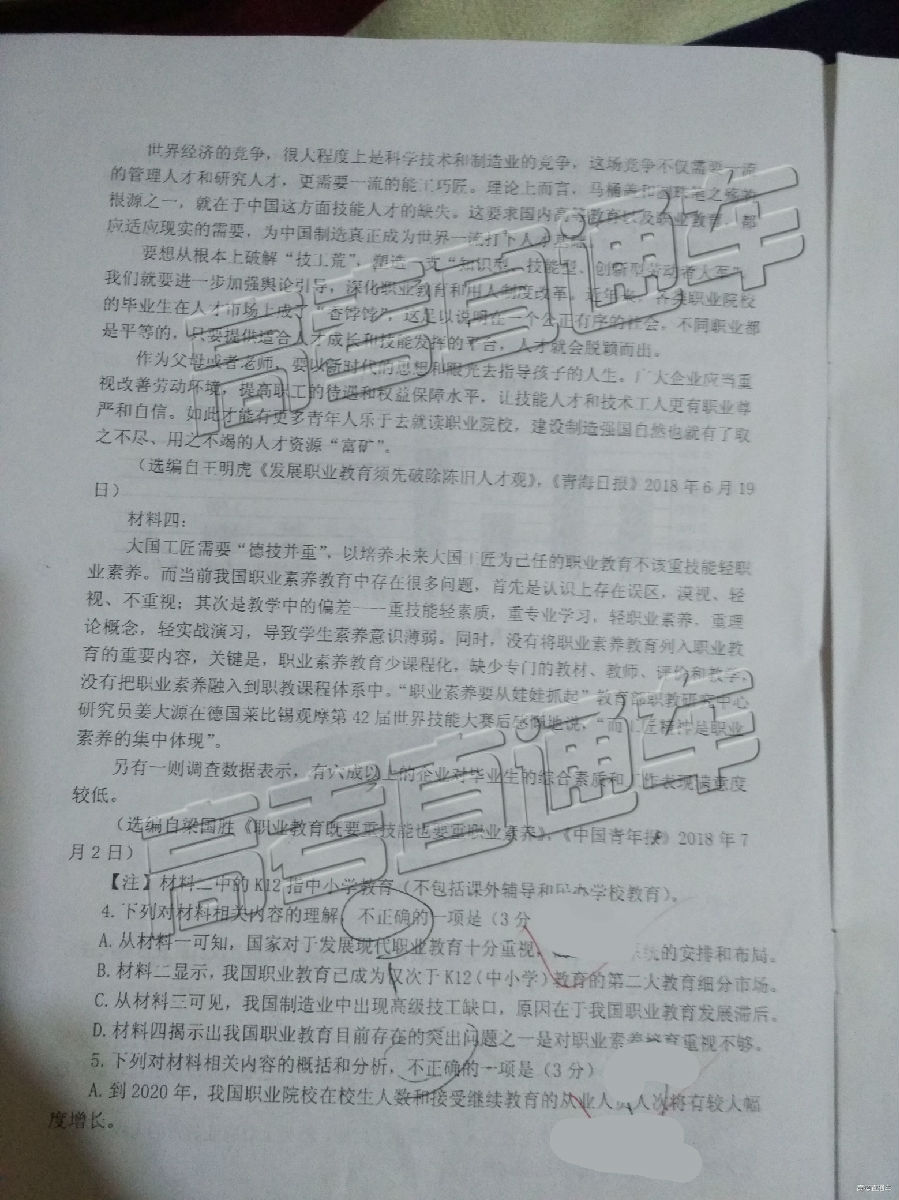 世界经济的竞争，很大程度上是科学技术和制造业的竞争，这场竞争不仅需要一流
的管理人才和研究人才，更需要一流的能工巧匠。理论上而言，马桶盖和圆珠笔之殇的
根源之一，就在于中国这方面技能人才的缺失。这要求国内高等教育以及职业教育，都
应适应现实的需要，为中国制造真正成为世界一流打下人才基础。
要想从根本上破解“技工荒”，塑造一支“知识型、技能型、创新型劳动者大军”，
我们就要进一步加强舆论引导，深化职业教育和用人制度改革。近年来，各类职业院校
的毕业生在人才市场上成了“香饽饽”，这足以说明在一个公正有序的社会，不同职业都
是平等的，只要提供适合人才成长和技能发挥的平台，人才就会脱颖而出。
作为父母或者老师，要以新时代的思想和眼光去指导孩子的人生。广大企业应当重
视改善劳动环境，提高职工的待遇和权益保障水平，让技能人才和技术工人更有职业尊
严和自信。如此才能有更多青年人乐于去就读职业院校，建设制造强国自然也就有了取
之不尽、用之不竭的人才资源“富矿”。
（选编自王明虎《发展职业教育须先破除陈旧人才观》，《青海日报》2018年6月19
日）
材料四：
大国工匠需要“德技并重”，以培养未来大国工匠为己任的职业教育不该重技能轻职
业素养。而当前我国职业素养教育中存在很多问题，首先是认识上存在误区，漠视、轻
视、不重视；其次是教学中的偏差——重技能轻素质，重专业学习，轻职业素养，重理
论概念，轻实战演习，导致学生素养意识薄弱。同时，没有将职业素养教育列入职业教
育的重要内容，关键是，职业素养教育少课程化，缺少专门的教材、教师、评价和教学，
没有把职业素养融入到职教课程体系中。“职业素养要从娃娃抓起”教育部职教研究中心
研究员姜大源在德国莱比锡观摩第42届世界技能大赛后感慨地说，“而工匠精神是职业
素养的集中体现”。
另有一则调查数据表示，有六成以上的企业对毕业生的综合素质和工作表现满意度
较低。
（选编自梁国胜《职业教育既要重技能也要重职业素养》，《中国青年报》2018年7
月2日）
【注】材料二中的K12指中小学教育（不包括课外辅导和民办学校教育）。
4.下列对材料相关内容的理解，不正确的一项是（3分
A.从材料一可知，国家对于发展现代职业教育十分重视 系统的安排和布局。
B.材料二显示，我国职业教育已成为仅次于K12（中小学）教育的第二大教育细分市场。
C.从材料三可见，我国制造业中出现高级技工缺口，原因在于我国职业教育发展滞后。
D.材料四揭示出我国职业教育目前存在的突出问题之一是对职业素养培育重视不够。
5.下列对材料相关内容的概括和分析，不正确的一项是（3分）
A.到2020年，我国职业院校在校生人数和接受继续教育的从业人员人次将有较大幅
度增长。
高考直通车
高考直通车